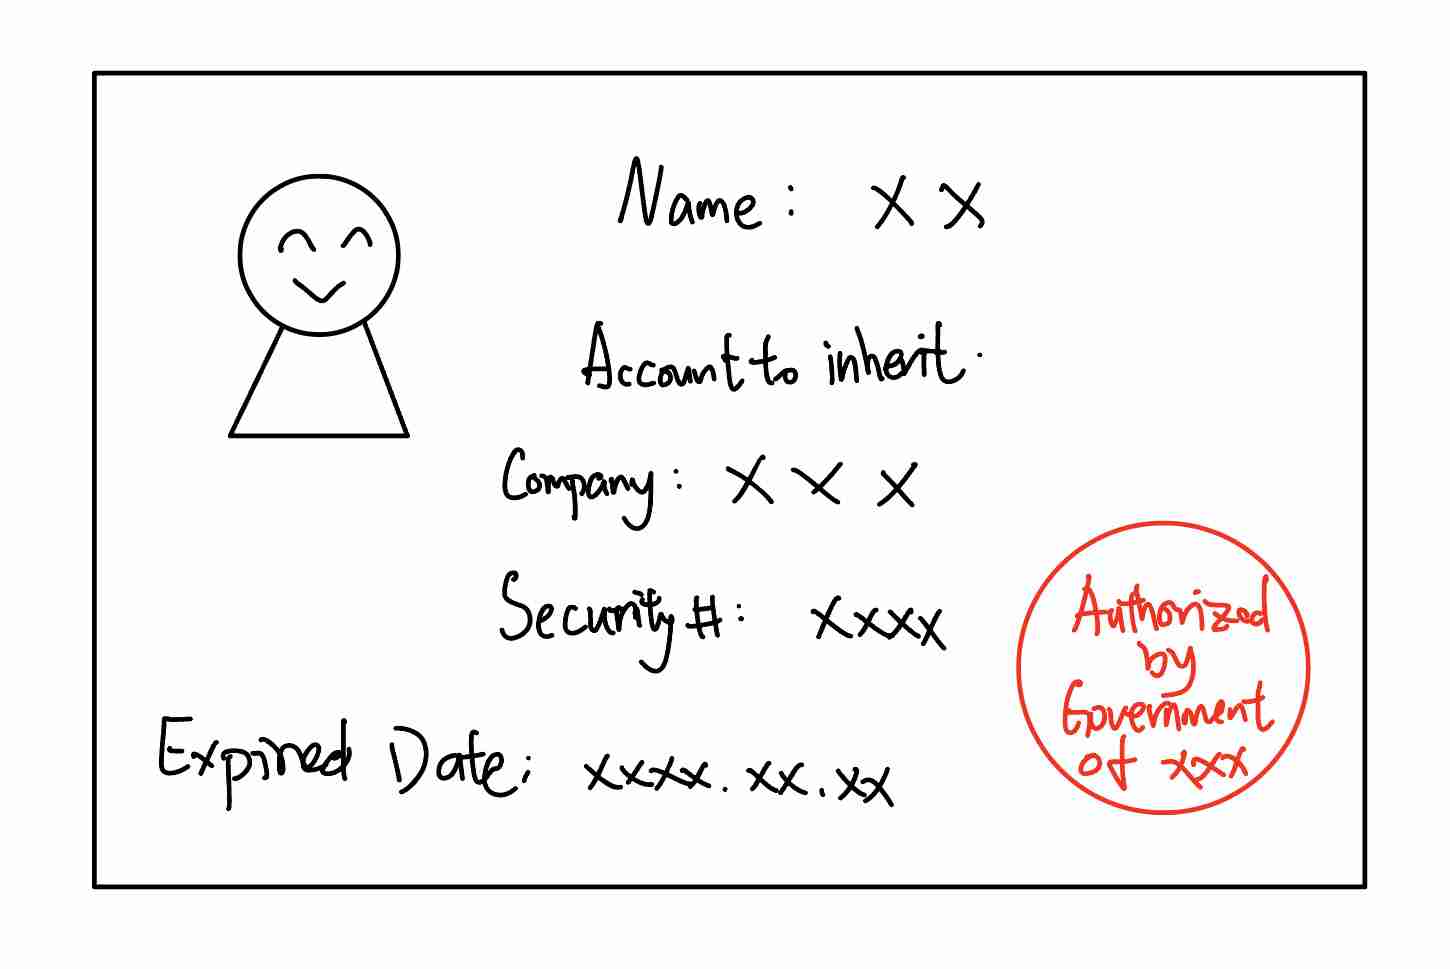 Name: XX
Account to inherit.
Company: XXX
Security#: XXXX
Expired Date: xxxx.xx.xx
Authorized
by
Government
of xxx